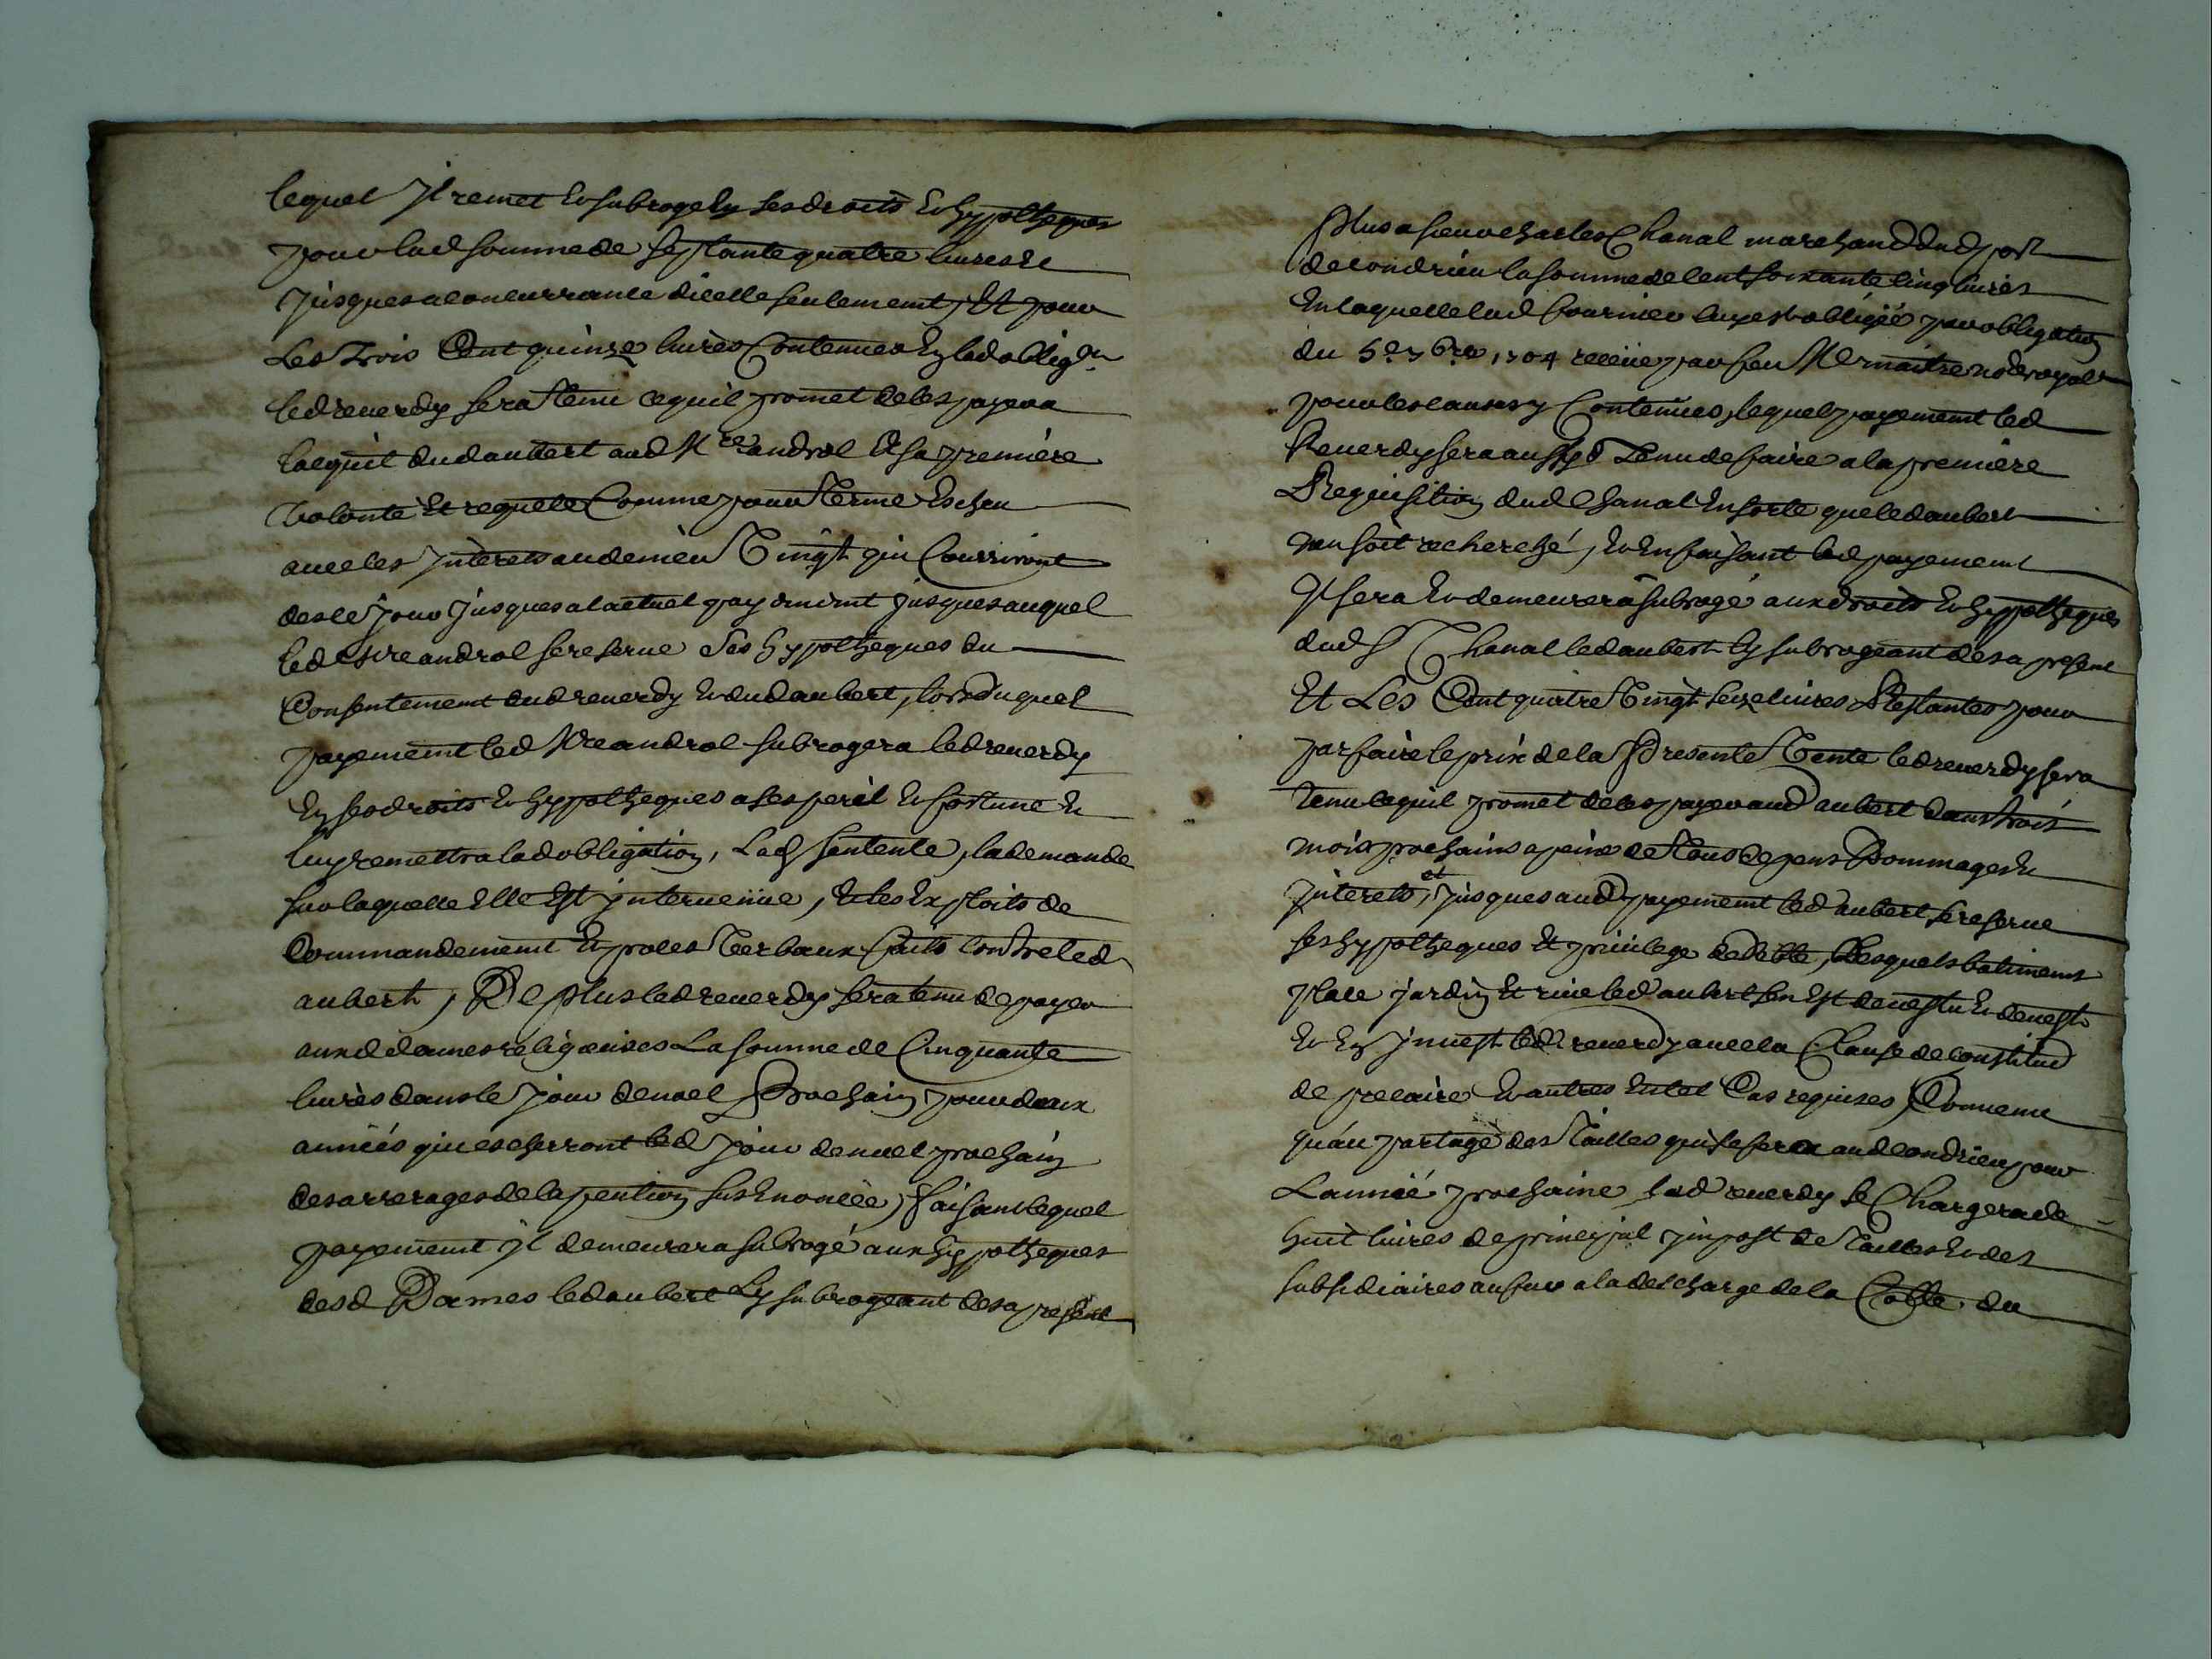 lequel Jl remet et subroge en ses droits et hypotheques
pour lad somme de septante quatre livres et
Jusques a concurrance dicelle seulement, Et pour
Les Trois Cent quinze livres Contenues En lad oblig.on
led reverdy sera tenu ce quil promet de les payer a
lacquit dud aubert aud Mre androl Et sa première
volonté Et requete Comme pour terme Escheu
avec les Jnterets au denier Vingt qui Courriront
des ce Jour Jusques a lactuel payement Jusques auquel
led Mre androl se reserve Ses hypotheques du
Consentement dud reverdy et dud aubert, lors duquel
payement led Mre androl subrogera led reverdy
En ses droits et hypotheques a ses peril et fortune et
luy remettra lad obligation, Lad Sentence, la demande
sur laquelle Elle Est jntervenüe, Et les Exploits de
Commandement Et proces Verbaux faits Contre led
aubert, De plus led reverdy sera tenu de payer
auxd dames religieuses La somme de Cinquante
livres dans le Jour de noel Prochain pour deux
années qui escherront led Jour de noel prochain
des arrerages de la pention sus Enoncée, faisant lequel
payement Jl demeurera subrogé aux hypotheques
desd Dames led aubert Ly subrogeant des a present
Plus a sieur charles Chanal marchand dud port
de Condrieu la somme de Cent soixante Cinq livres
En laquelle led Fournier luy est obligé par obligation
du 5e 7bre 1704 receüe par feu Me maitre nore royal
pour les causes y Contenues, lequel payement led
Reverdy sera aussy Tenu de faire a la premiere
Requisition dud Chanal En sorte que led aubert
nen soit recherché, et En faisant led payement
Jl sera et demeurera subrogé aux droits et hypotheques
dud Sr Chanal led aubert Ly subrogeant des a present
Et Les Cent quatre Vingt seize livres Restantes pour
parfaire le prix de la Presente Vente led reverdy sera
Tenu ce quil promet de les payer aud aubert dans trois
mois prochains a peine de Tous depens Dommages et
Jnterets, et Jusques aud payement led aubert se reserve
ses hypotheques Et privilege de dette, Desquels batiments
place jardin Et rive led aubert sen Est devestu et devest
et En jnvest led reverdy avec la Clause de constitud
de precaire et autres En tel Cas requises, Convenu
qu'au partage des Tailles qui se fera aud Condrieu pour
Lannéé prochaine led reverdy se Chargera de
huit livres de principal jmpost de Tailles et des
subsidiaires au fur a la descharge de la Cotte du